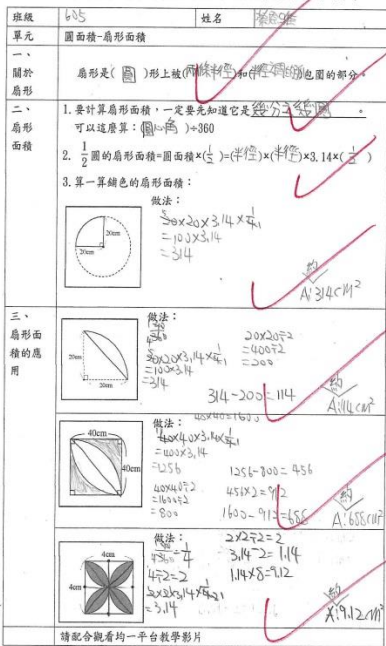 班級 605 姓名
單元 圓面積-扇形面積
一、關於扇形
扇形是(圓)形上被(兩條半徑)和( )包圍的部分。
二、扇形面積
1.要計算扇形面積,一定要先知道它是幾分之幾圓。
可以這麼算:(圓心角)÷360
2. 1/2圓的扇形面積=圓面積×(1/2)=(半徑)×(半徑)×3.14×(1/2)
3.算一算鋪色的扇形面積:
20cm
20cm
做法:
20×20×3.14×1/4
=100×3.14
=314
約
A:314cm²
三、扇形面積的應用
20cm
20cm
做法:
20×20×3.14×1/4
=100×3.14
=314
20×20÷2
=400÷2
=200
314-200=114
約
A:114cm²
40cm
40cm
做法:
40×40=1600
40×40×3.14×1/4
=400×3.14
=1256
40×40÷2
=1600÷2
=800
1256-800=456
456×2=912
1600-912=688
約
A:688cm²
4cm
4cm
做法:
4÷2=2
=3.14
2×2÷2=2
3.14-2=1.14
1.14×8=9.12
約
A:9.12cm²
請配合觀看均一平台教學影片